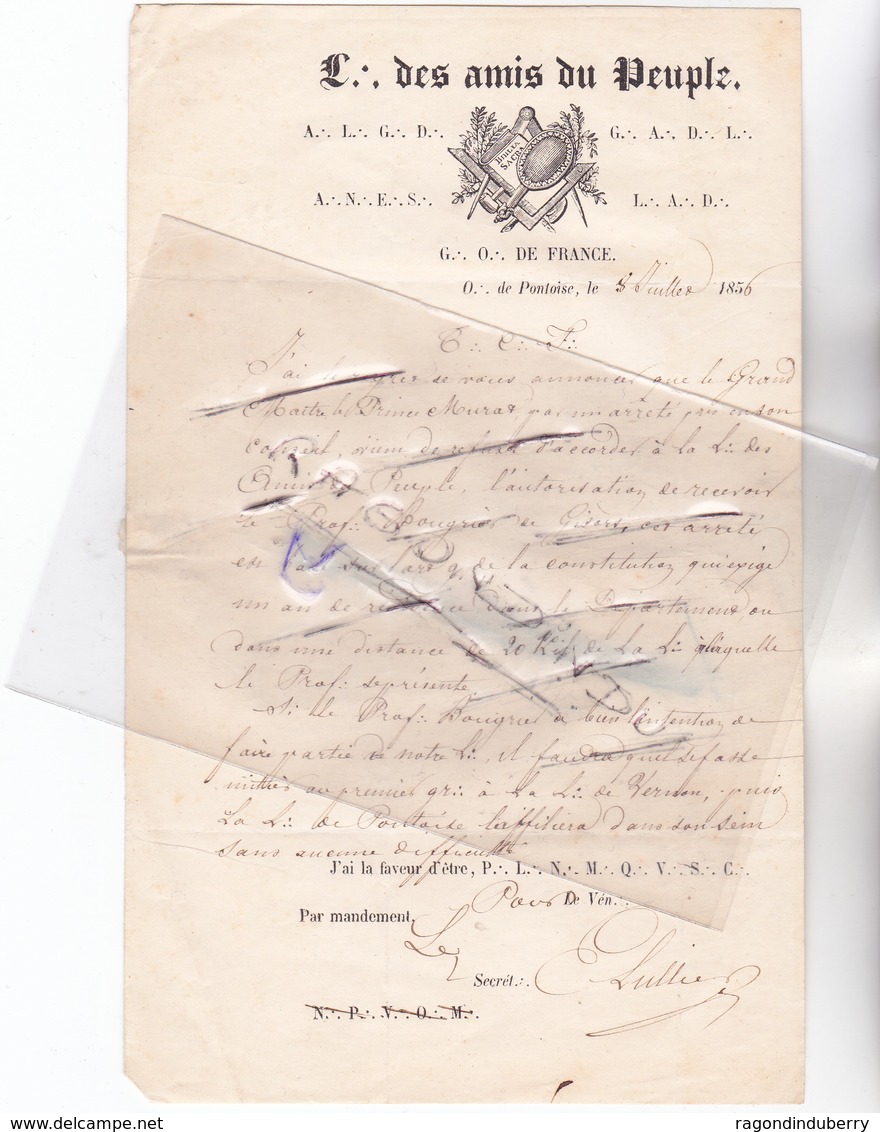 L∴ des amis du Peuple.
A∴ L∴ G∴ D∴ G∴ A∴ D∴ L∴
BIBLIA SACRA
A∴ N∴ E∴ S∴ L∴ A∴ D∴
G∴ O∴ DE FRANCE.
O∴ de Pontoise, le 8 Juillet 1856
T∴ C∴ F∴
J'ai le regret de vous annoncer que le Grand
Maître le Prince Murat, par un arrêté pris en son
conseil, vient de refuser d'accorder à la L∴ des
Amis du Peuple, l'autorisation de recevoir
le Prof∴ Bougrier de Gisors, cet arrêté
est basé sur l'art 9 de la constitution qui exige
un an de résidence dans le Département ou
dans une distance de 20 Kil. de La L∴ à laquelle
le Prof∴ se présente.
Si le Prof∴ Bougrier a bien l'intention de
faire partie de notre L∴, il faudra qu'il se fasse
initier au premier gr∴ à La L∴ de Vernon, puis
La L∴ de Pontoise l'affiliera dans son sein
sans aucune difficulté
J'ai la faveur d'être, P∴ L∴ N∴ M∴ Q∴ V∴ S∴ C∴
Pour Le Vén∴
Par mandement,
Le
Secrét∴ Lullier
N∴ P∴ V∴ O∴ M∴
RAGONDINDU
ragondinduberry
www.delcampe.net